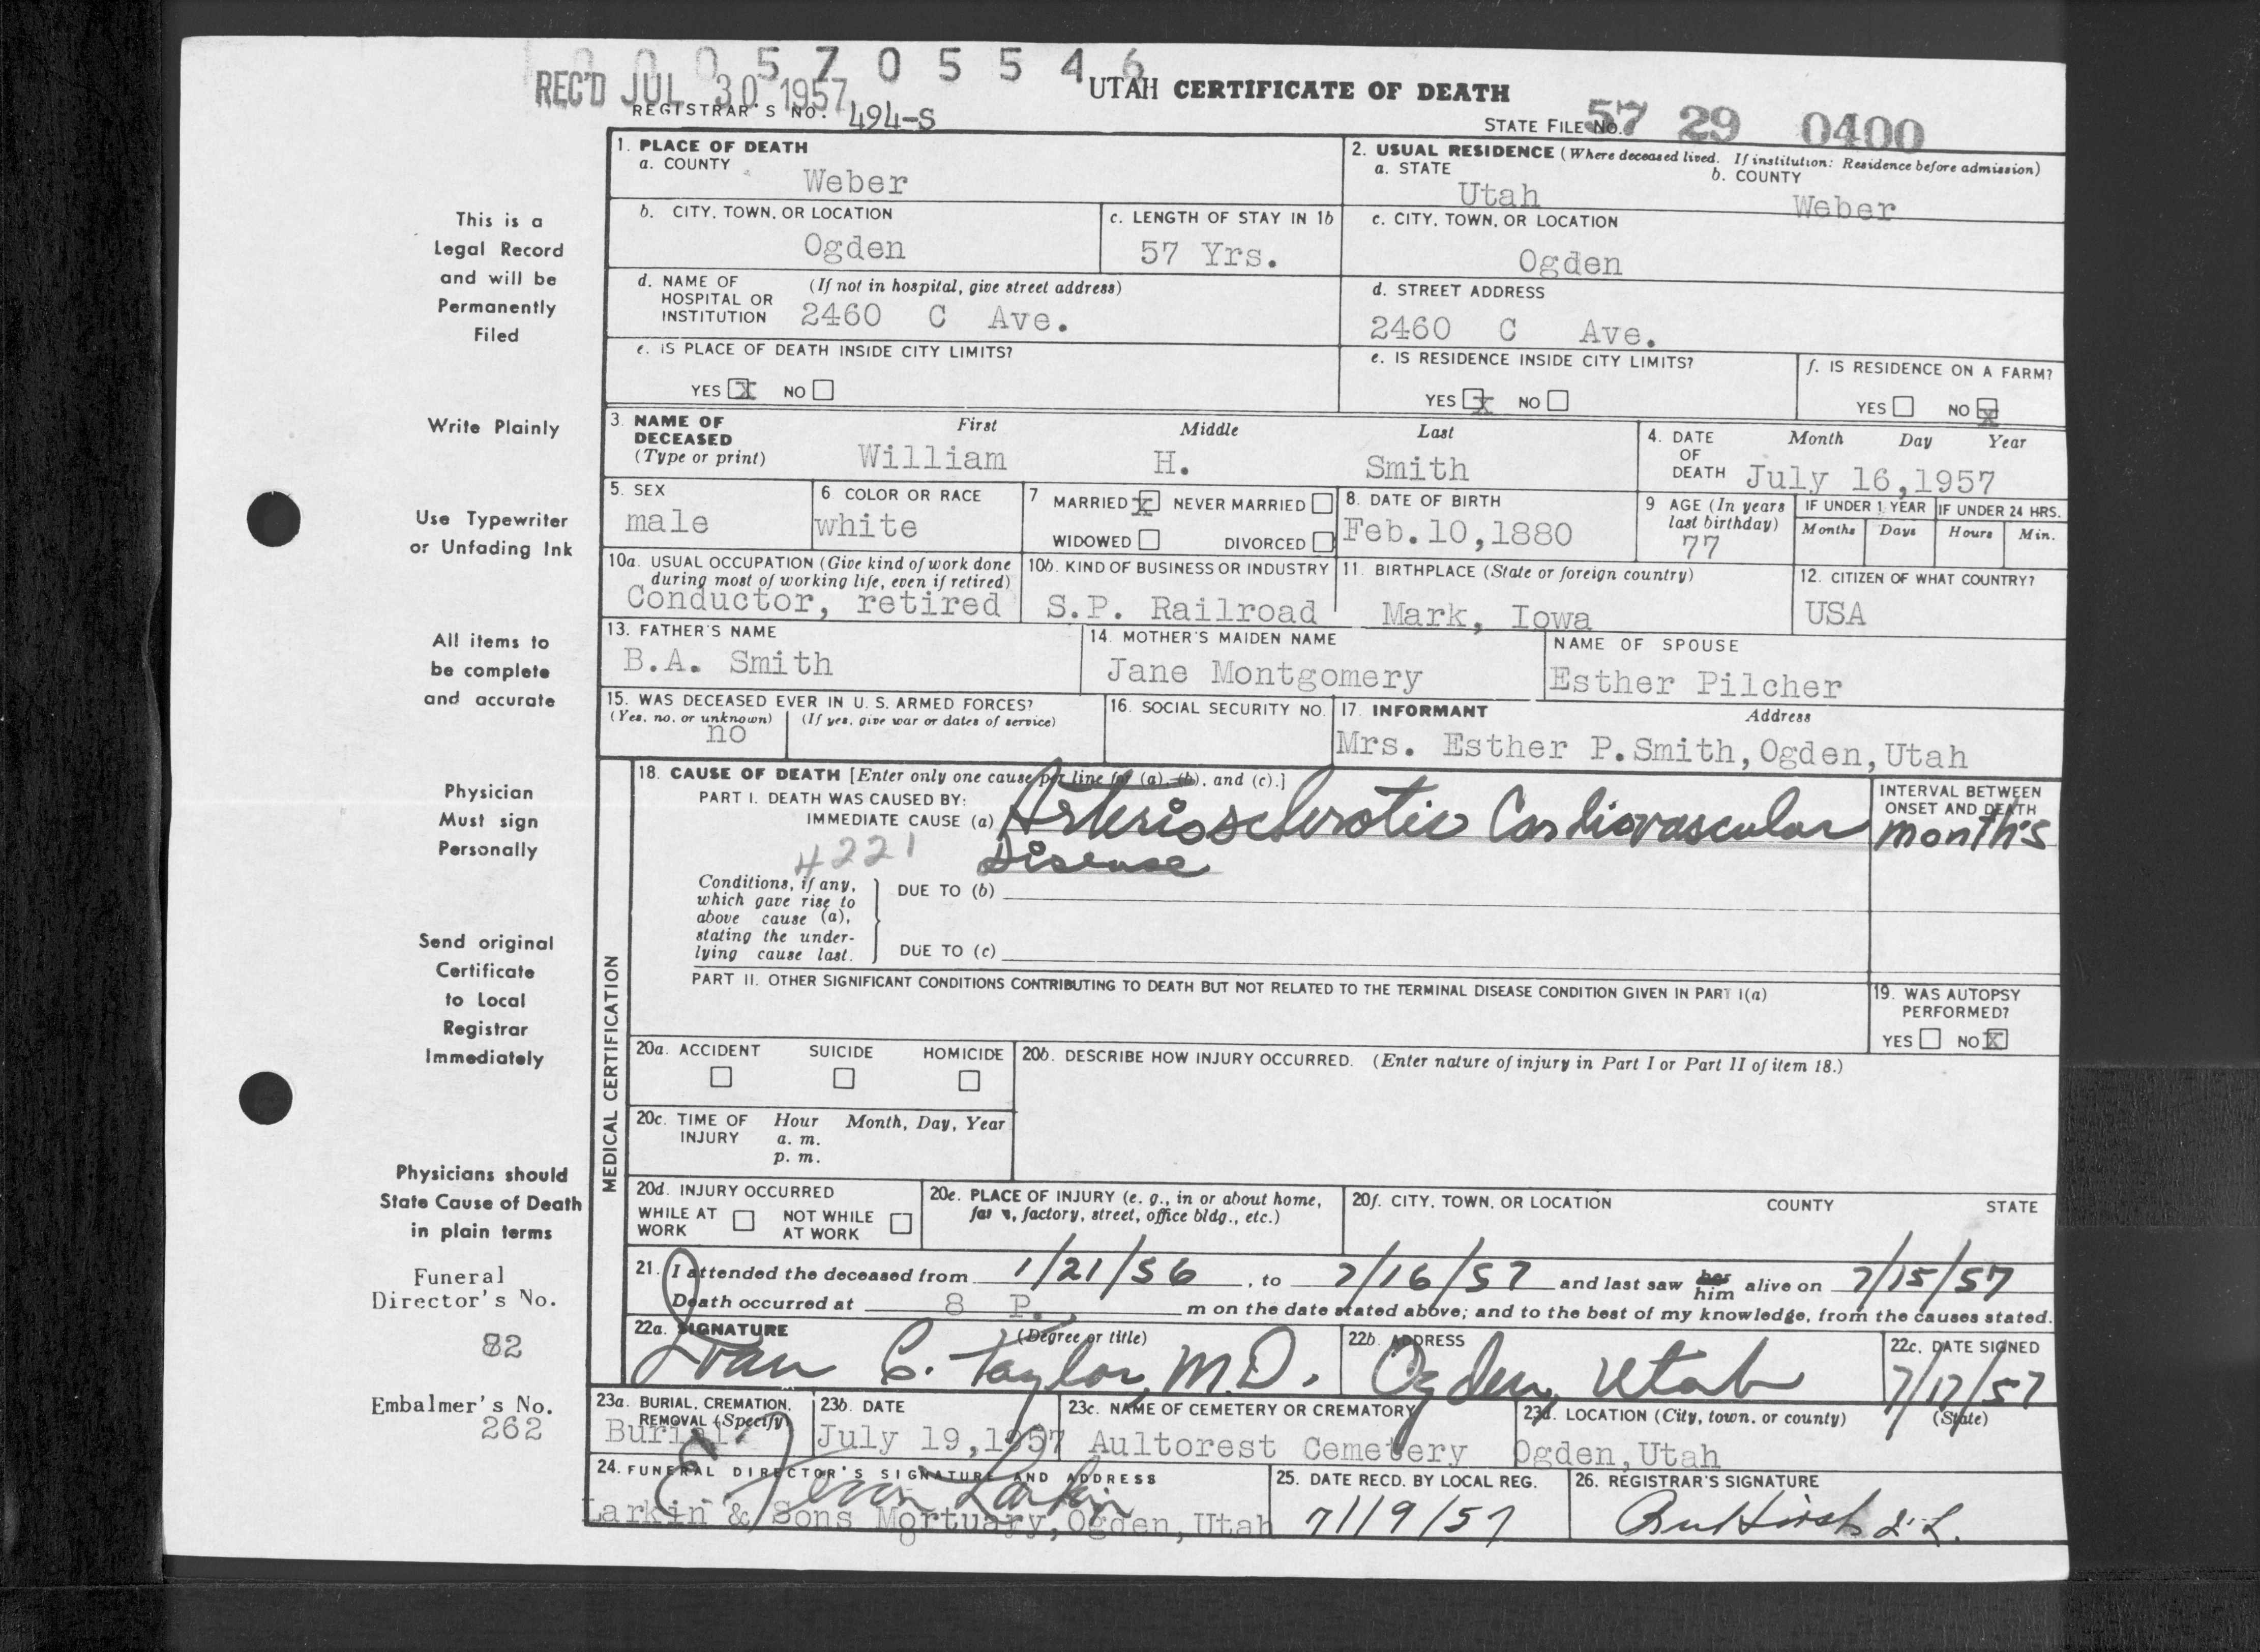 0 0 0 5 7 0 5 5 4 6
REC'D JUL 30 1957
UTAH CERTIFICATE OF DEATH
REGISTRAR'S NO. 494-S
STATE FILE NO. 57 29 0400
This is a
Legal Record
and will be
Permanently
Filed
Write Plainly
Use Typewriter
or Unfading Ink
All items to
be complete
and accurate
Physician
Must sign
Personally
Send original
Certificate
to Local
Registrar
Immediately
Physicians should
State Cause of Death
in plain terms
Funeral
Director's No.
82
Embalmer's No.
262
1. PLACE OF DEATH
a. COUNTY
Weber
2. USUAL RESIDENCE (Where deceased lived. If institution: Residence before admission)
a. STATE b. COUNTY
Utah Weber
b. CITY, TOWN, OR LOCATION
Ogden
c. LENGTH OF STAY IN 1b
57 Yrs.
c. CITY, TOWN, OR LOCATION
Ogden
d. NAME OF (If not in hospital, give street address)
HOSPITAL OR
INSTITUTION 2460 C Ave.
d. STREET ADDRESS
2460 C Ave.
e. IS PLACE OF DEATH INSIDE CITY LIMITS?
YES X NO
e. IS RESIDENCE INSIDE CITY LIMITS?
YES X NO
f. IS RESIDENCE ON A FARM?
YES NO X
3. NAME OF First Middle Last
DECEASED
(Type or print) William H. Smith
4. DATE Month Day Year
OF
DEATH July 16,1957
5. SEX
male
6 COLOR OR RACE
white
7 MARRIED X NEVER MARRIED
WIDOWED DIVORCED
8. DATE OF BIRTH
Feb.10,1880
9 AGE (In years
last birthday)
77
IF UNDER 1 YEAR IF UNDER 24 HRS.
Months Days Hours Min.
10a. USUAL OCCUPATION (Give kind of work done
during most of working life, even if retired)
Conductor, retired
10b. KIND OF BUSINESS OR INDUSTRY
S.P. Railroad
11. BIRTHPLACE (State or foreign country)
Mark, Iowa
12. CITIZEN OF WHAT COUNTRY?
USA
13. FATHER'S NAME
B.A. Smith
14. MOTHER'S MAIDEN NAME
Jane Montgomery
NAME OF SPOUSE
Esther Pilcher
15. WAS DECEASED EVER IN U. S. ARMED FORCES?
(Yes, no, or unknown) (If yes, give war or dates of service)
no
16. SOCIAL SECURITY NO.
17. INFORMANT Address
Mrs. Esther P.Smith,Ogden,Utah
MEDICAL CERTIFICATION
18. CAUSE OF DEATH [Enter only one cause per line for (a), (b), and (c).]
PART I. DEATH WAS CAUSED BY:
IMMEDIATE CAUSE (a) Arteriosclerotic Cardiovascular
4221 Disease
INTERVAL BETWEEN
ONSET AND DEATH
months
Conditions, if any,
which gave rise to
above cause (a),
stating the under-
lying cause last.
DUE TO (b)
DUE TO (c)
PART II. OTHER SIGNIFICANT CONDITIONS CONTRIBUTING TO DEATH BUT NOT RELATED TO THE TERMINAL DISEASE CONDITION GIVEN IN PART I(a)
19. WAS AUTOPSY
PERFORMED?
YES NO X
20a. ACCIDENT SUICIDE HOMICIDE
20b. DESCRIBE HOW INJURY OCCURRED. (Enter nature of injury in Part I or Part II of item 18.)
20c. TIME OF Hour Month, Day, Year
INJURY a. m.
p. m.
20d. INJURY OCCURRED
WHILE AT NOT WHILE
WORK AT WORK
20e. PLACE OF INJURY (e. g., in or about home,
farm, factory, street, office bldg., etc.)
20f. CITY, TOWN, OR LOCATION COUNTY STATE
21. I attended the deceased from 1/21/56, to 7/16/57 and last saw her him alive on 7/15/57
Death occurred at 8 P. m on the date stated above; and to the best of my knowledge, from the causes stated.
22a. SIGNATURE (Degree or title)
Ivan C. Taylor, M.D.
22b. ADDRESS
Ogden, Utah
22c. DATE SIGNED
7/17/57
23a. BURIAL, CREMATION,
REMOVAL (Specify)
Burial
23b. DATE
July 19,1957
23c. NAME OF CEMETERY OR CREMATORY
Aultorest Cemetery
23d. LOCATION (City, town, or county) (State)
Ogden,Utah
24. FUNERAL DIRECTOR'S SIGNATURE AND ADDRESS
Larkin
Larkin & Sons Mortuary,Ogden,Utah
25. DATE RECD. BY LOCAL REG.
7/19/57
26. REGISTRAR'S SIGNATURE